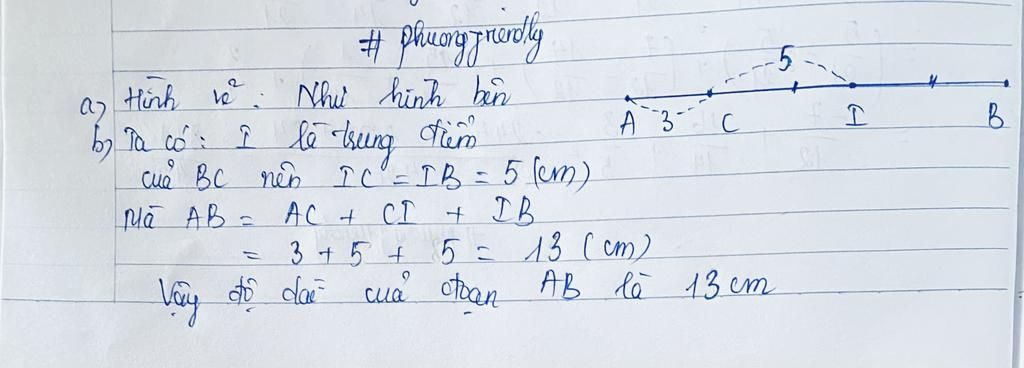 # phuongfriendly
a) Hình vẽ: Như hình bên
b) Ta có: I là trung điểm
của BC nên IC = IB = 5 (cm)
Mà AB = AC + CI + IB
= 3 + 5 + 5 = 13 (cm)
Vậy độ dài của đoạn AB là 13 cm
5
A 3 C I B